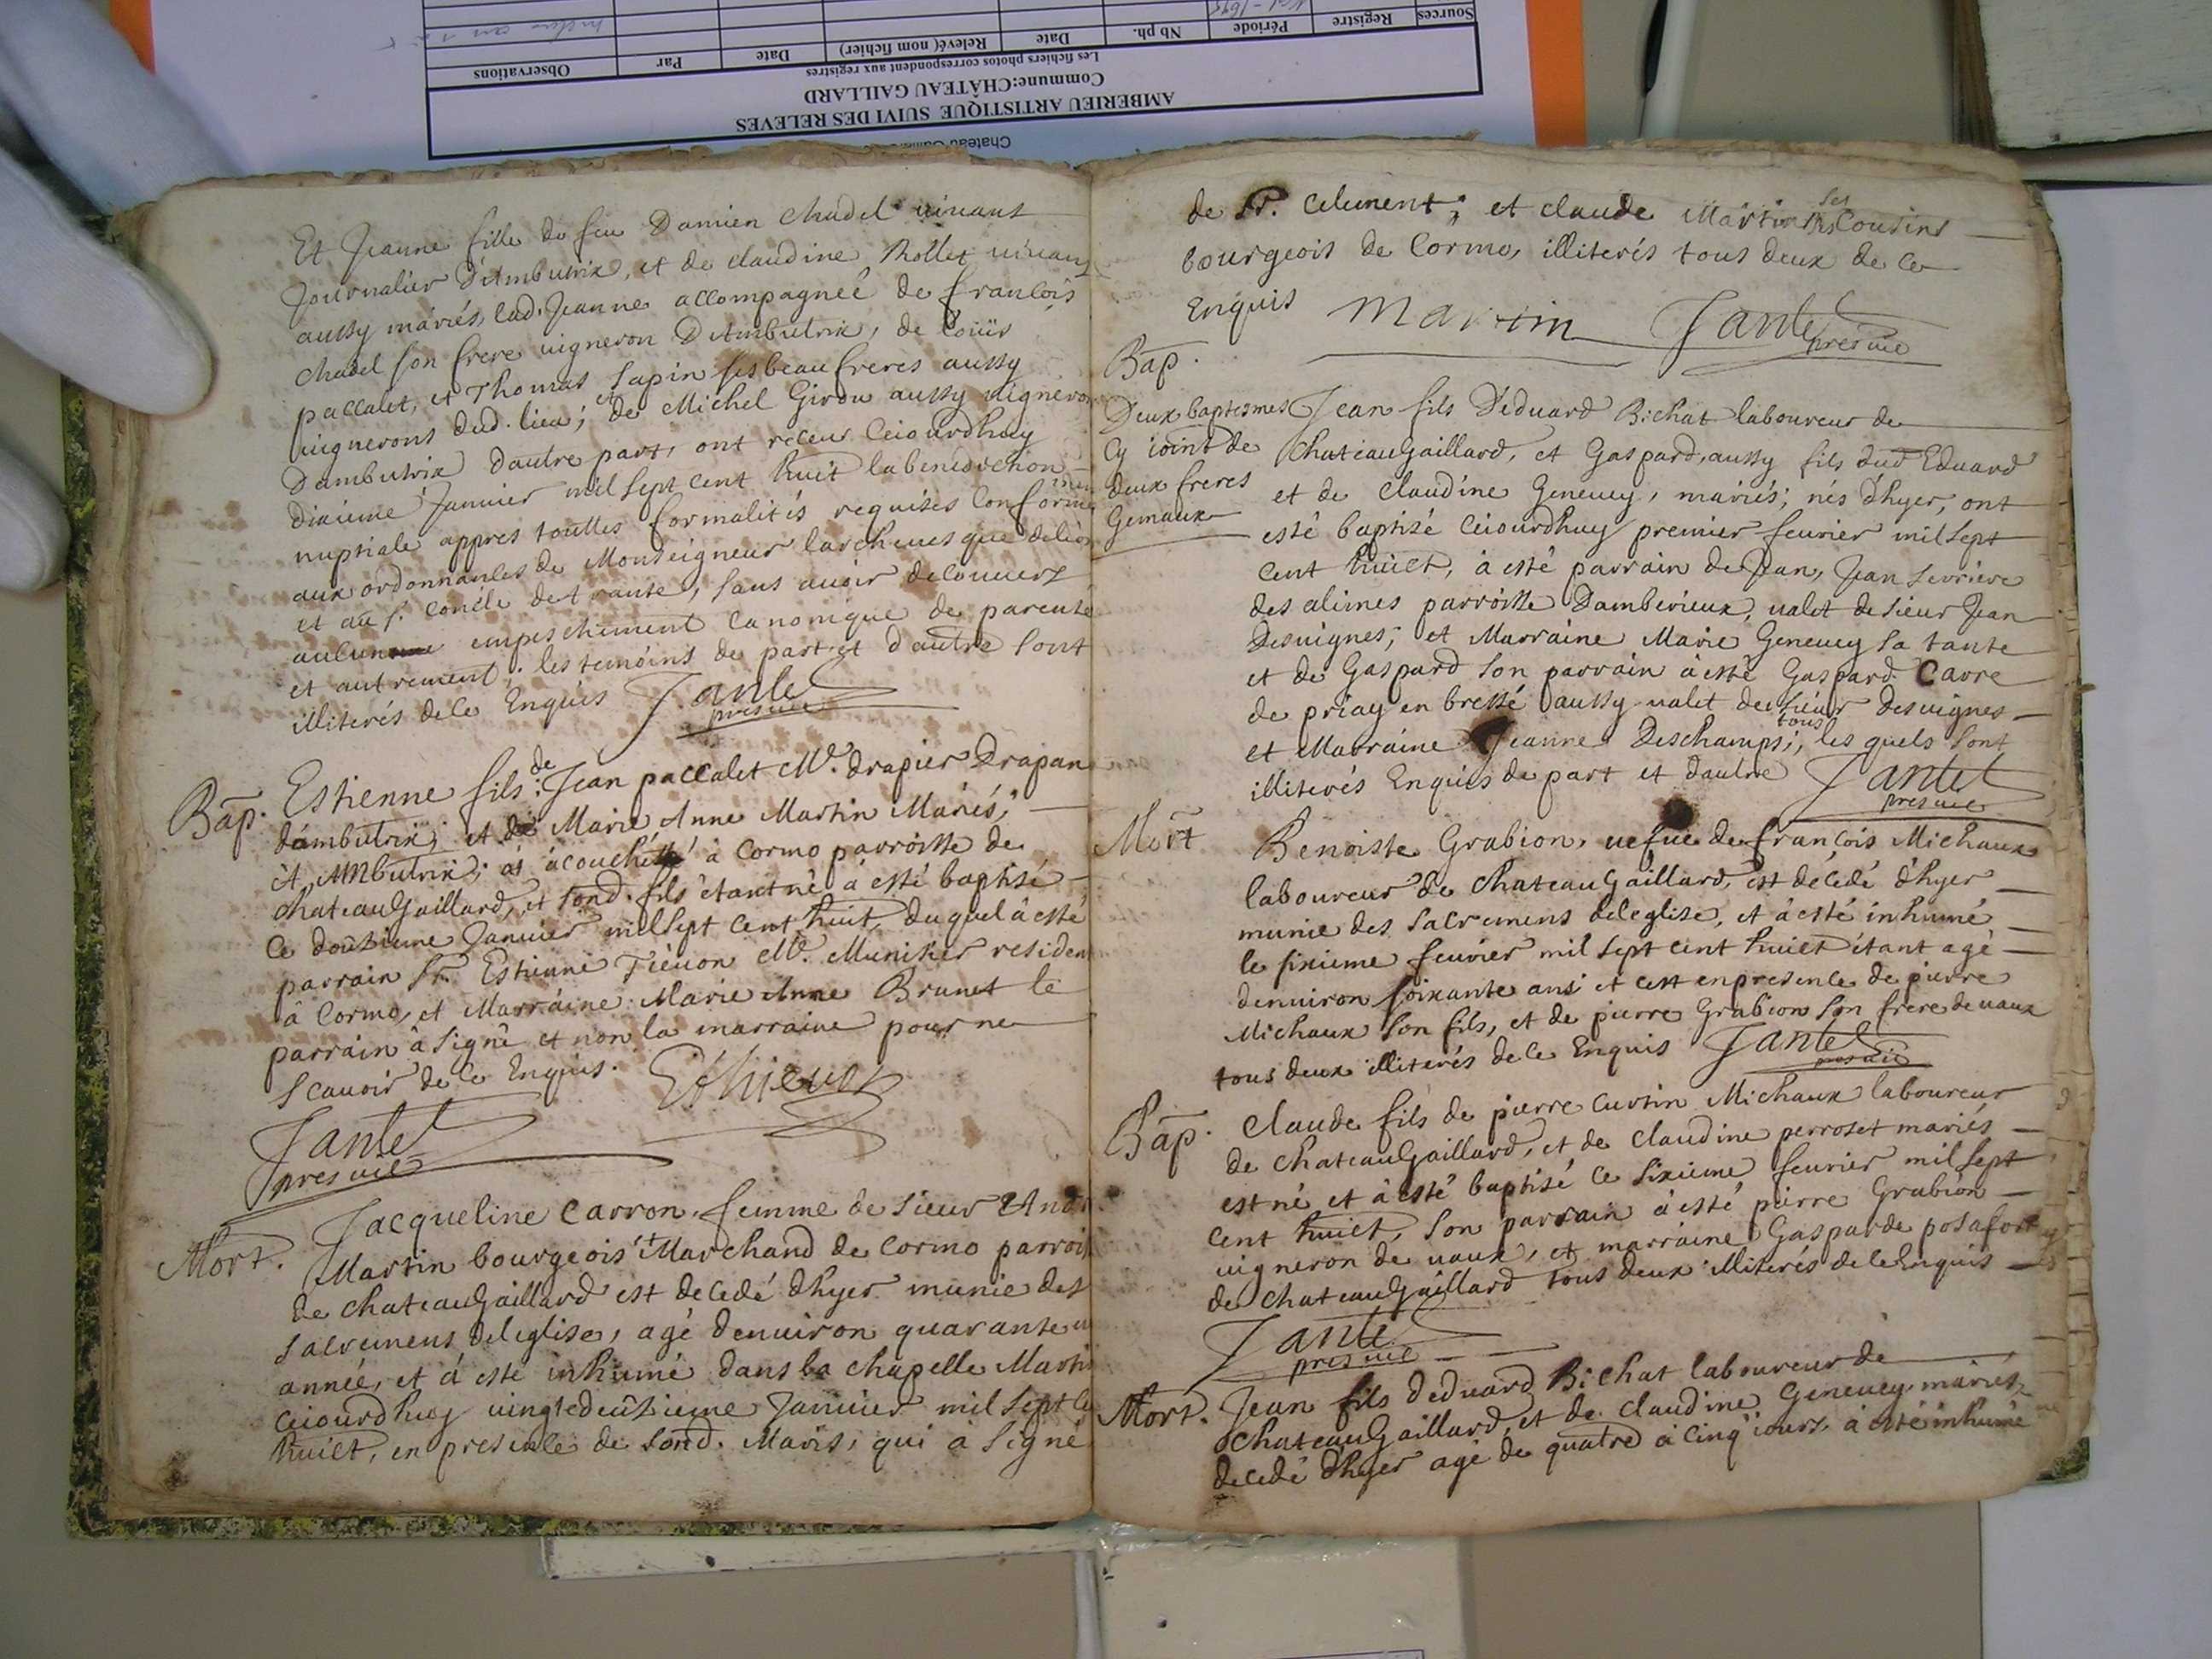 Sources Registre Période Nb ph. Date Relevé( nom fichier) Date Par Observations
Les fichiers photos correspondent aux registres
Commune:CHÂTEAU GAILLARD
AMBERIEU ARTISTIQUE SUIVI DES RELEVES
Et Jeanne fille de feu Damien chadel vivant
Journalier D'Ambutrix, et de claudine Rollet vivan
aussy mariés, lad. Jeanne accompagneé de francois
chadel son frere vigneron D'Ambutrix, de Loüis
paccalet, et Thomas Sapin ses beaufreres aussy
vignerons dud. lieu; et de Michel Girou aussy vigneron
Dambutrix dautre part, ont receu Ceiourdhuy
dixieme Janvier mil sept cent huit la benediction
nuptiale appres touttes formalités requises Conforme
aux ordonnances de Monseigneur larchevesque de lion
et au s. concile de trante, sans avoir decouvert
aucun empeschement canonique de parente
et autrement; les temoins de part et d'autre sont
illiterés de ce Enquis Jantet
pres vic
Bap. Estienne fils de Jean paccalet Me. drapier Drapan
dambutrix; et de Marie Anne Martin Mariés;
A Ambutrix; as acouché à Cormo parroisse de
chateauGaillard, et sond. fils étant né à esté baptisé
Ce douzieme Janvier mil sept cent huit, duquel à esté
parrain Sr. Estienne Tiévon Me. Munisier residen
à Cormo, et Marraine Marie Anne Brunet le
parrain à signé et non la marraine pour ne
scavoir de ce Enquis.
Jantet
pres vic
Mort. Jacqueline Carron, femme de sieur And
Martin bourgeois et Marchand de Cormo parrois
de chateauGaillard est decedé dhyer munie des
sacremens de leglise, agé denviron quarante
année, et à esté inhumé dans la chapelle Martin
Ceiourdhuy vingtdeuzieme Janvier mil sept ce
huict, en presence de sond. Maris, qui à signé
de Sr. Clement; et claude Martin ses Cousins
bourgeois de Cormo, illiterés tous deux de ce
Enquis Martin Jantet
pres vic
Bap.
Deux baptesmes
Cy ioint de
deux freres
Gemaux
Jean fils D'éduard Bichat laboureur de
ChateauGaillard, et Gaspard, aussy fils dud Eduard
et de claudine Genevey, mariés; nés dhyer, ont
esté baptisé Ceiourdhuy premier fevrier mil sept
cent huict, à esté parrain de Jean, Jean Serriere
des alimes parroisse Damberieux, valet de sieur Jean
Desvignes; et Marraine Marie Genevey sa tante
et de Gaspard son parrain à esté Gaspard Carre
de priay en bresse aussy valet de sieur desvignes
et Marraine Jeanne Deschamps; tous les quels sont
illiterés Enquis de part et dautre Jantet
pres vic
Mort Benoiste Grabion, vefue de francois Michaux
laboureur de chateauGaillard, est décédé dhyer
munie des sacremens de leglise, et à esté inhumé
le sixieme fevrier mil sept cent huict étant agé
denviron soixante ans et cest en presence de pierre
Michaux son fils, et de pierre Grabion son frere de vaux
tous deux illiterés de ce Enquis Jantet
pres vic
Bap. Claude fils de pierre Curtin Michaux laboureur
de chateauGaillard, et de claudine perroset mariés
est né et à esté baptisé ce sixieme fevrier mil sept
cent huict, son parrain à esté pierre Grabion
vigneron de vaux, et marraine Gasparde posafort
de chateauGaillard tous deux illiterés de ce Enquis
Jantet
pres vic
Mort. Jean fils deduard Bichat laboureur de
chateauGaillard, et de claudine Genevey mariés,
decedé dhyer agé de quatre à cinq iours, à esté inhumé